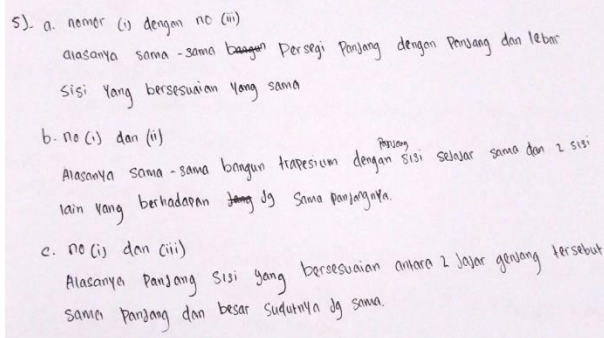 5). a. nomor (i) dengan no (iii)
alasanya sama - sama bangun Persegi Panjang dengan Panjang dan lebar
sisi Yang bersesuaian Yang sama
b. no (i) dan (ii)
Alasanya sama - sama bangun trapesium dengan Panjang sisi sejajar sama dan 2 sisi
lain yang berhadapan yang jg sama panjangnya.
c. no (i) dan (iii)
Alasanya Panjang sisi yang bersesuaian antara 2 Jajar genjang tersebut
sama panjang dan besar sudutnya jg sama.